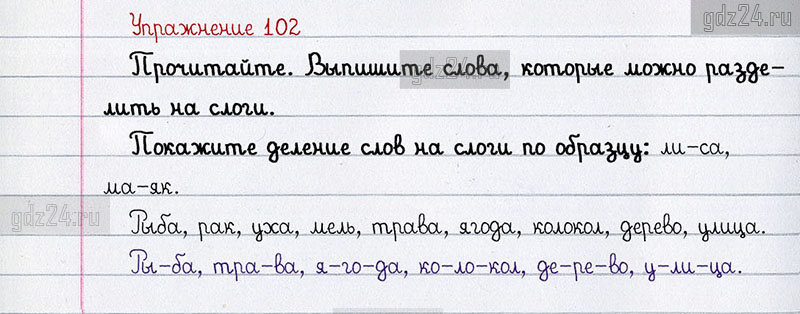 gdz24.ru
Упражнение 102
Прочитайте. Выпишите слова, которые можно разде-
gdz24.ru
лить на слоги.
Покажите деление слов на слоги по образцу: ли-са,
ма-як.
gdz24.ru
Рыба, рак, уха, мель, трава, ягода, колокол, дерево, улица.
Ры-ба, тра-ва, я-го-да, ко-ло-кол, де-ре-во, у-ли-ца.